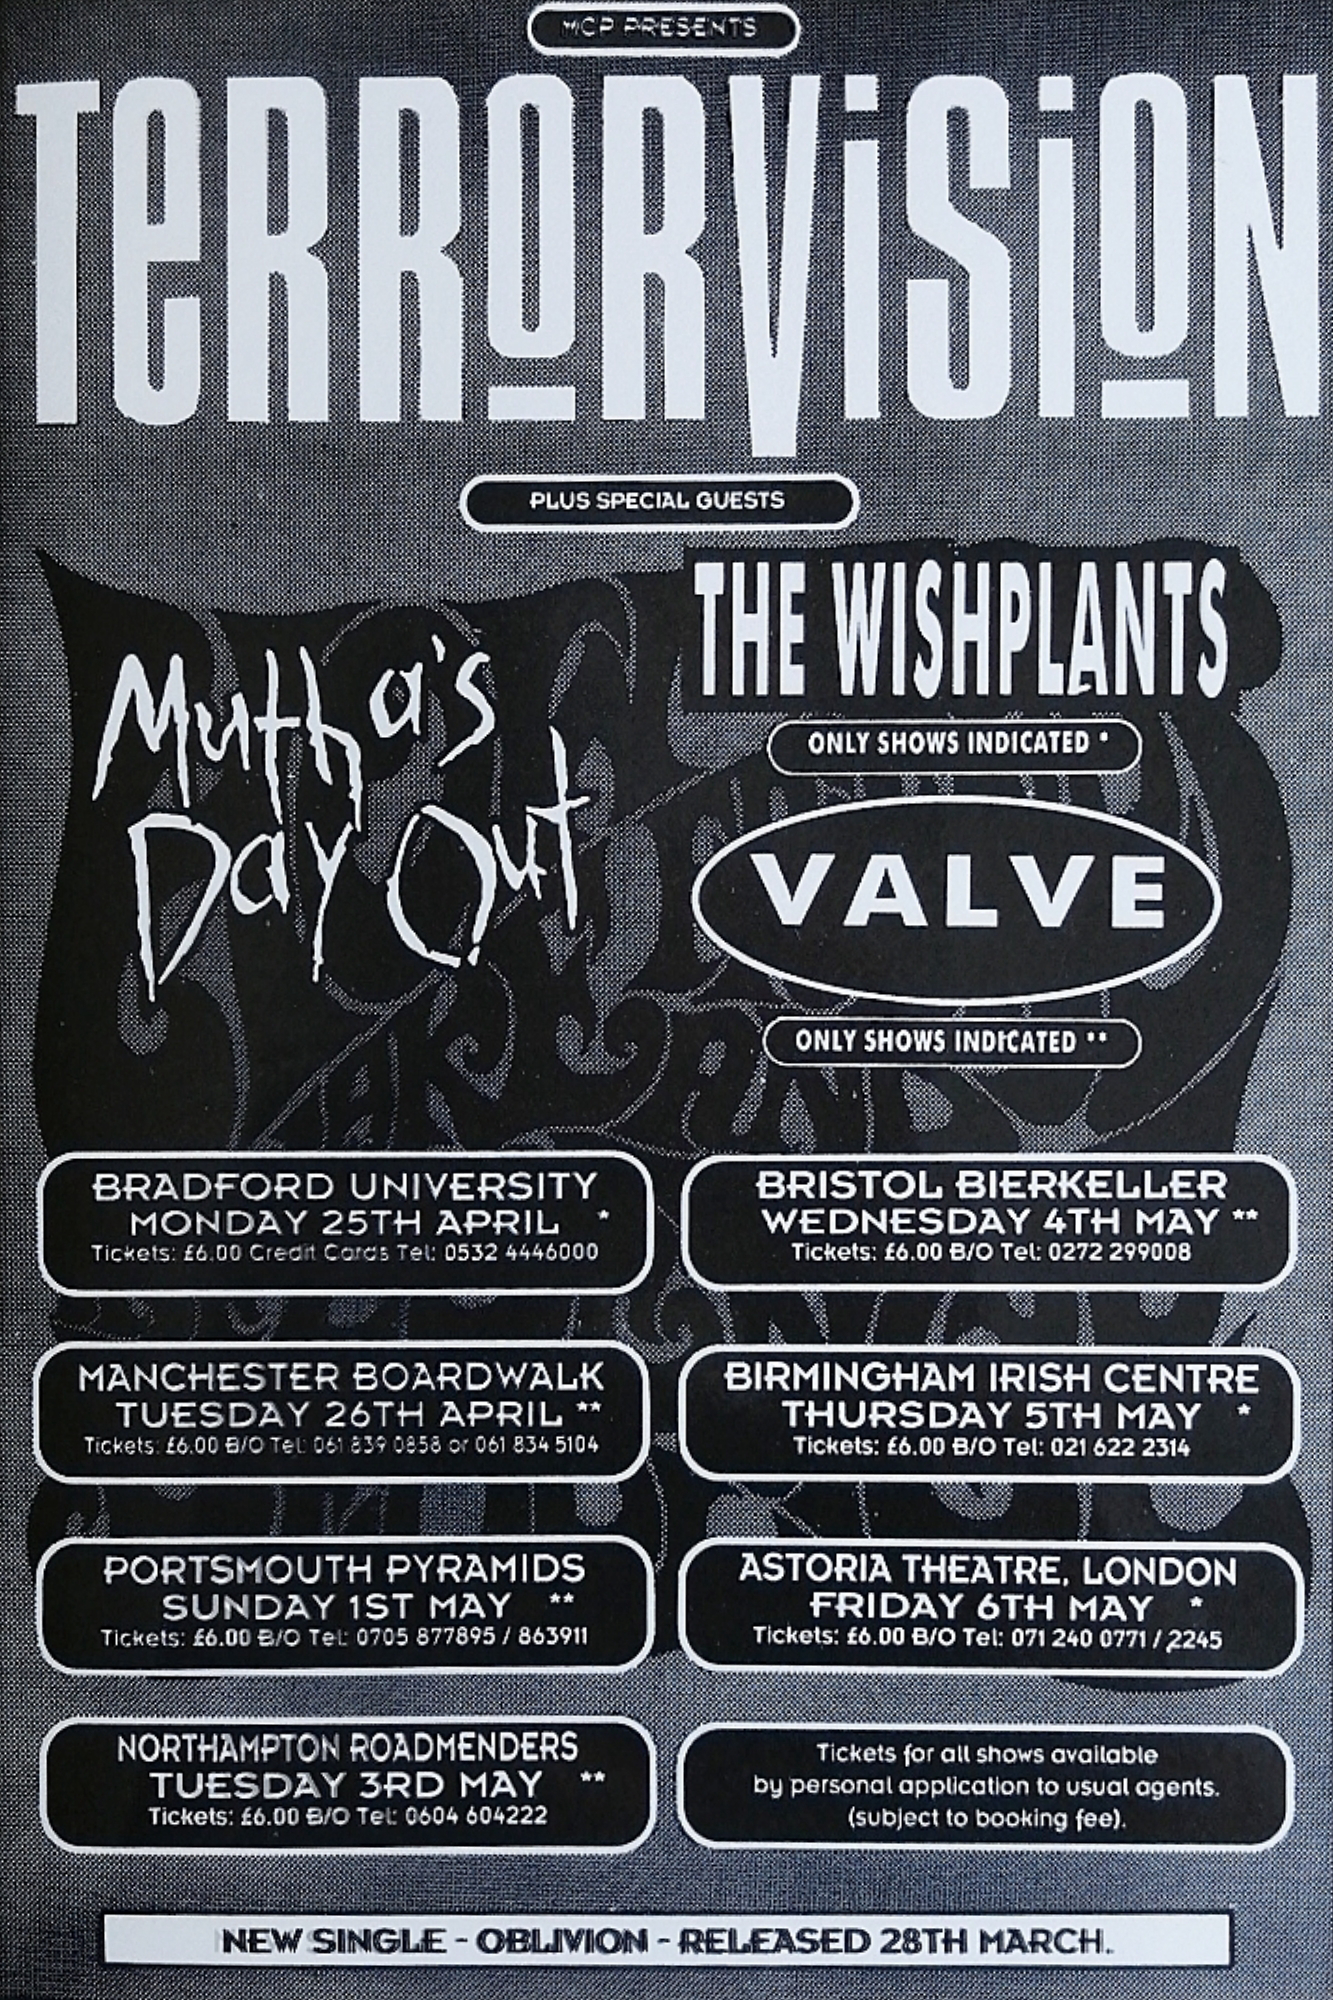 MCP PRESENTS
TERRORVISION
PLUS SPECIAL GUESTS
Mutha's
Day Out
THE WISHPLANTS
ONLY SHOWS INDICATED *
VALVE
ONLY SHOWS INDICATED **
BRADFORD UNIVERSITY
MONDAY 25TH APRIL *
Tickets: £6.00 Credit Cards Tel: 0532 4446000
MANCHESTER BOARDWALK
TUESDAY 26TH APRIL **
Tickets: £6.00 B/O Tel: 061 839 0858 or 061 834 5104
PORTSMOUTH PYRAMIDS
SUNDAY 1ST MAY **
Tickets: £6.00 B/O Tel: 0705 877895 / 863911
NORTHAMPTON ROADMENDERS
TUESDAY 3RD MAY **
Tickets: £6.00 B/O Tel: 0604 604222
BRISTOL BIERKELLER
WEDNESDAY 4TH MAY **
Tickets: £6.00 B/O Tel: 0272 299008
BIRMINGHAM IRISH CENTRE
THURSDAY 5TH MAY *
Tickets: £6.00 B/O Tel: 021 622 2314
ASTORIA THEATRE, LONDON
FRIDAY 6TH MAY *
Tickets: £6.00 B/O Tel: 071 240 0771 / 2245
Tickets for all shows available
by personal application to usual agents.
(subject to booking fee).
NEW SINGLE - OBLIVION - RELEASED 28TH MARCH.